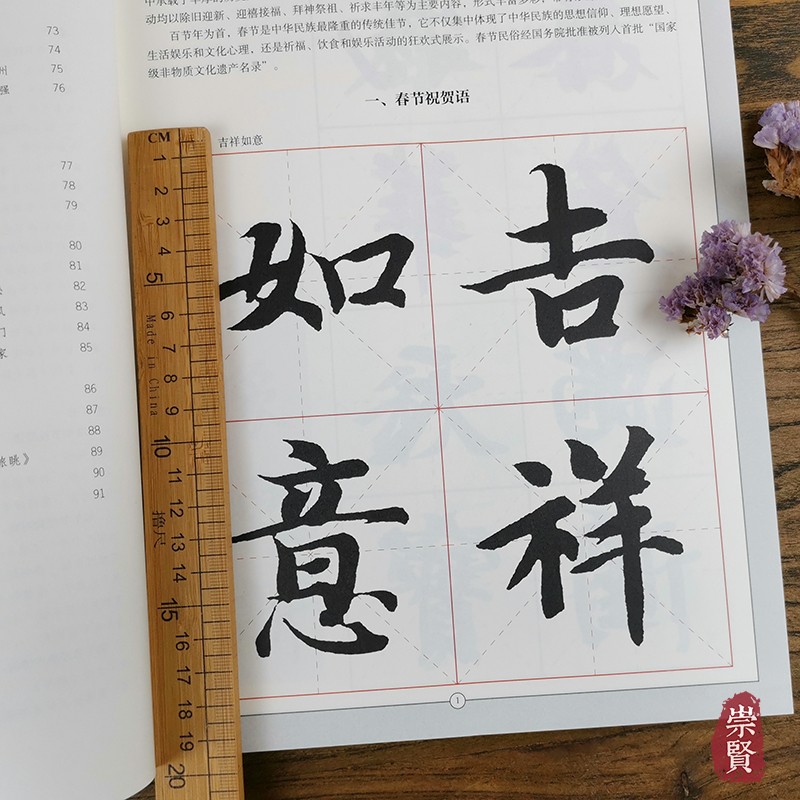 73
74
州 75
强 76
77
78
79
80
81
82
风 83
门 84
家 85
86
87
88
张眺》 89
90
91
动均以除旧迎新、迎禧接福、拜神祭祖、祈求丰年等为主要内容,形式丰富多彩,
百节年为首,春节是中华民族最隆重的传统佳节,它不仅集中体现了中华民族的思想信仰、理想愿望、
生活娱乐和文化心理,还是祈福、饮食和娱乐活动的狂欢式展示。春节民俗经国务院批准被列入首批“国家
级非物质文化遗产名录”。
一、春节祝贺语
吉祥如意
吉祥
如意
1
CM
1
2
3
4
5
6
7
8
9
10
11
12
13
14
15
16
17
18
19
20
Made in China
撸尺
崇賢